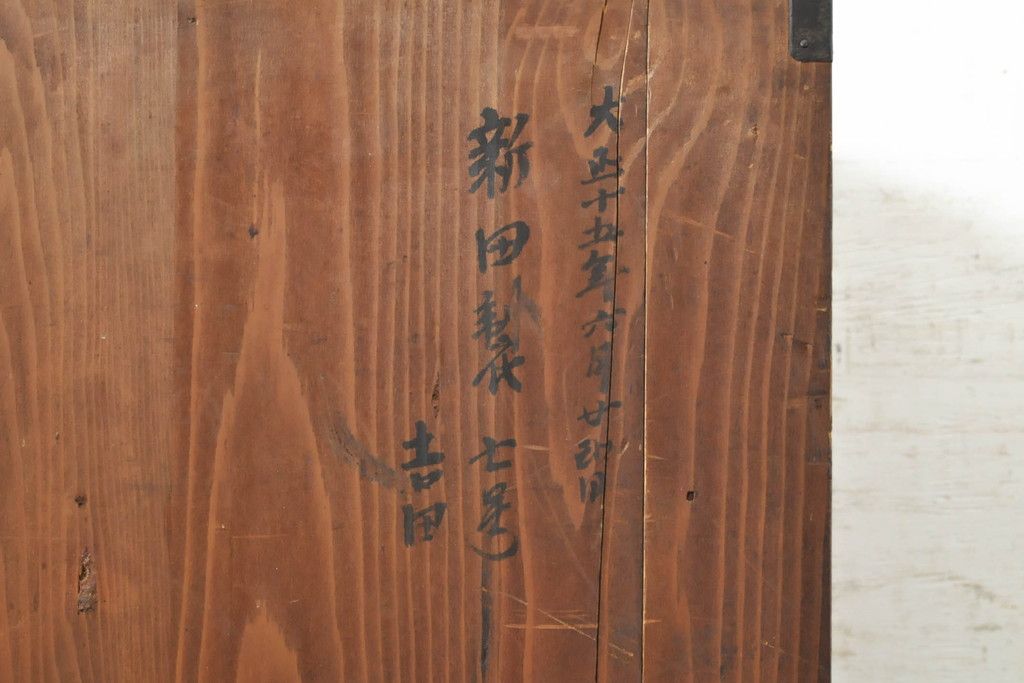 大正十五年六月廿四日
新田製 七号
吉田